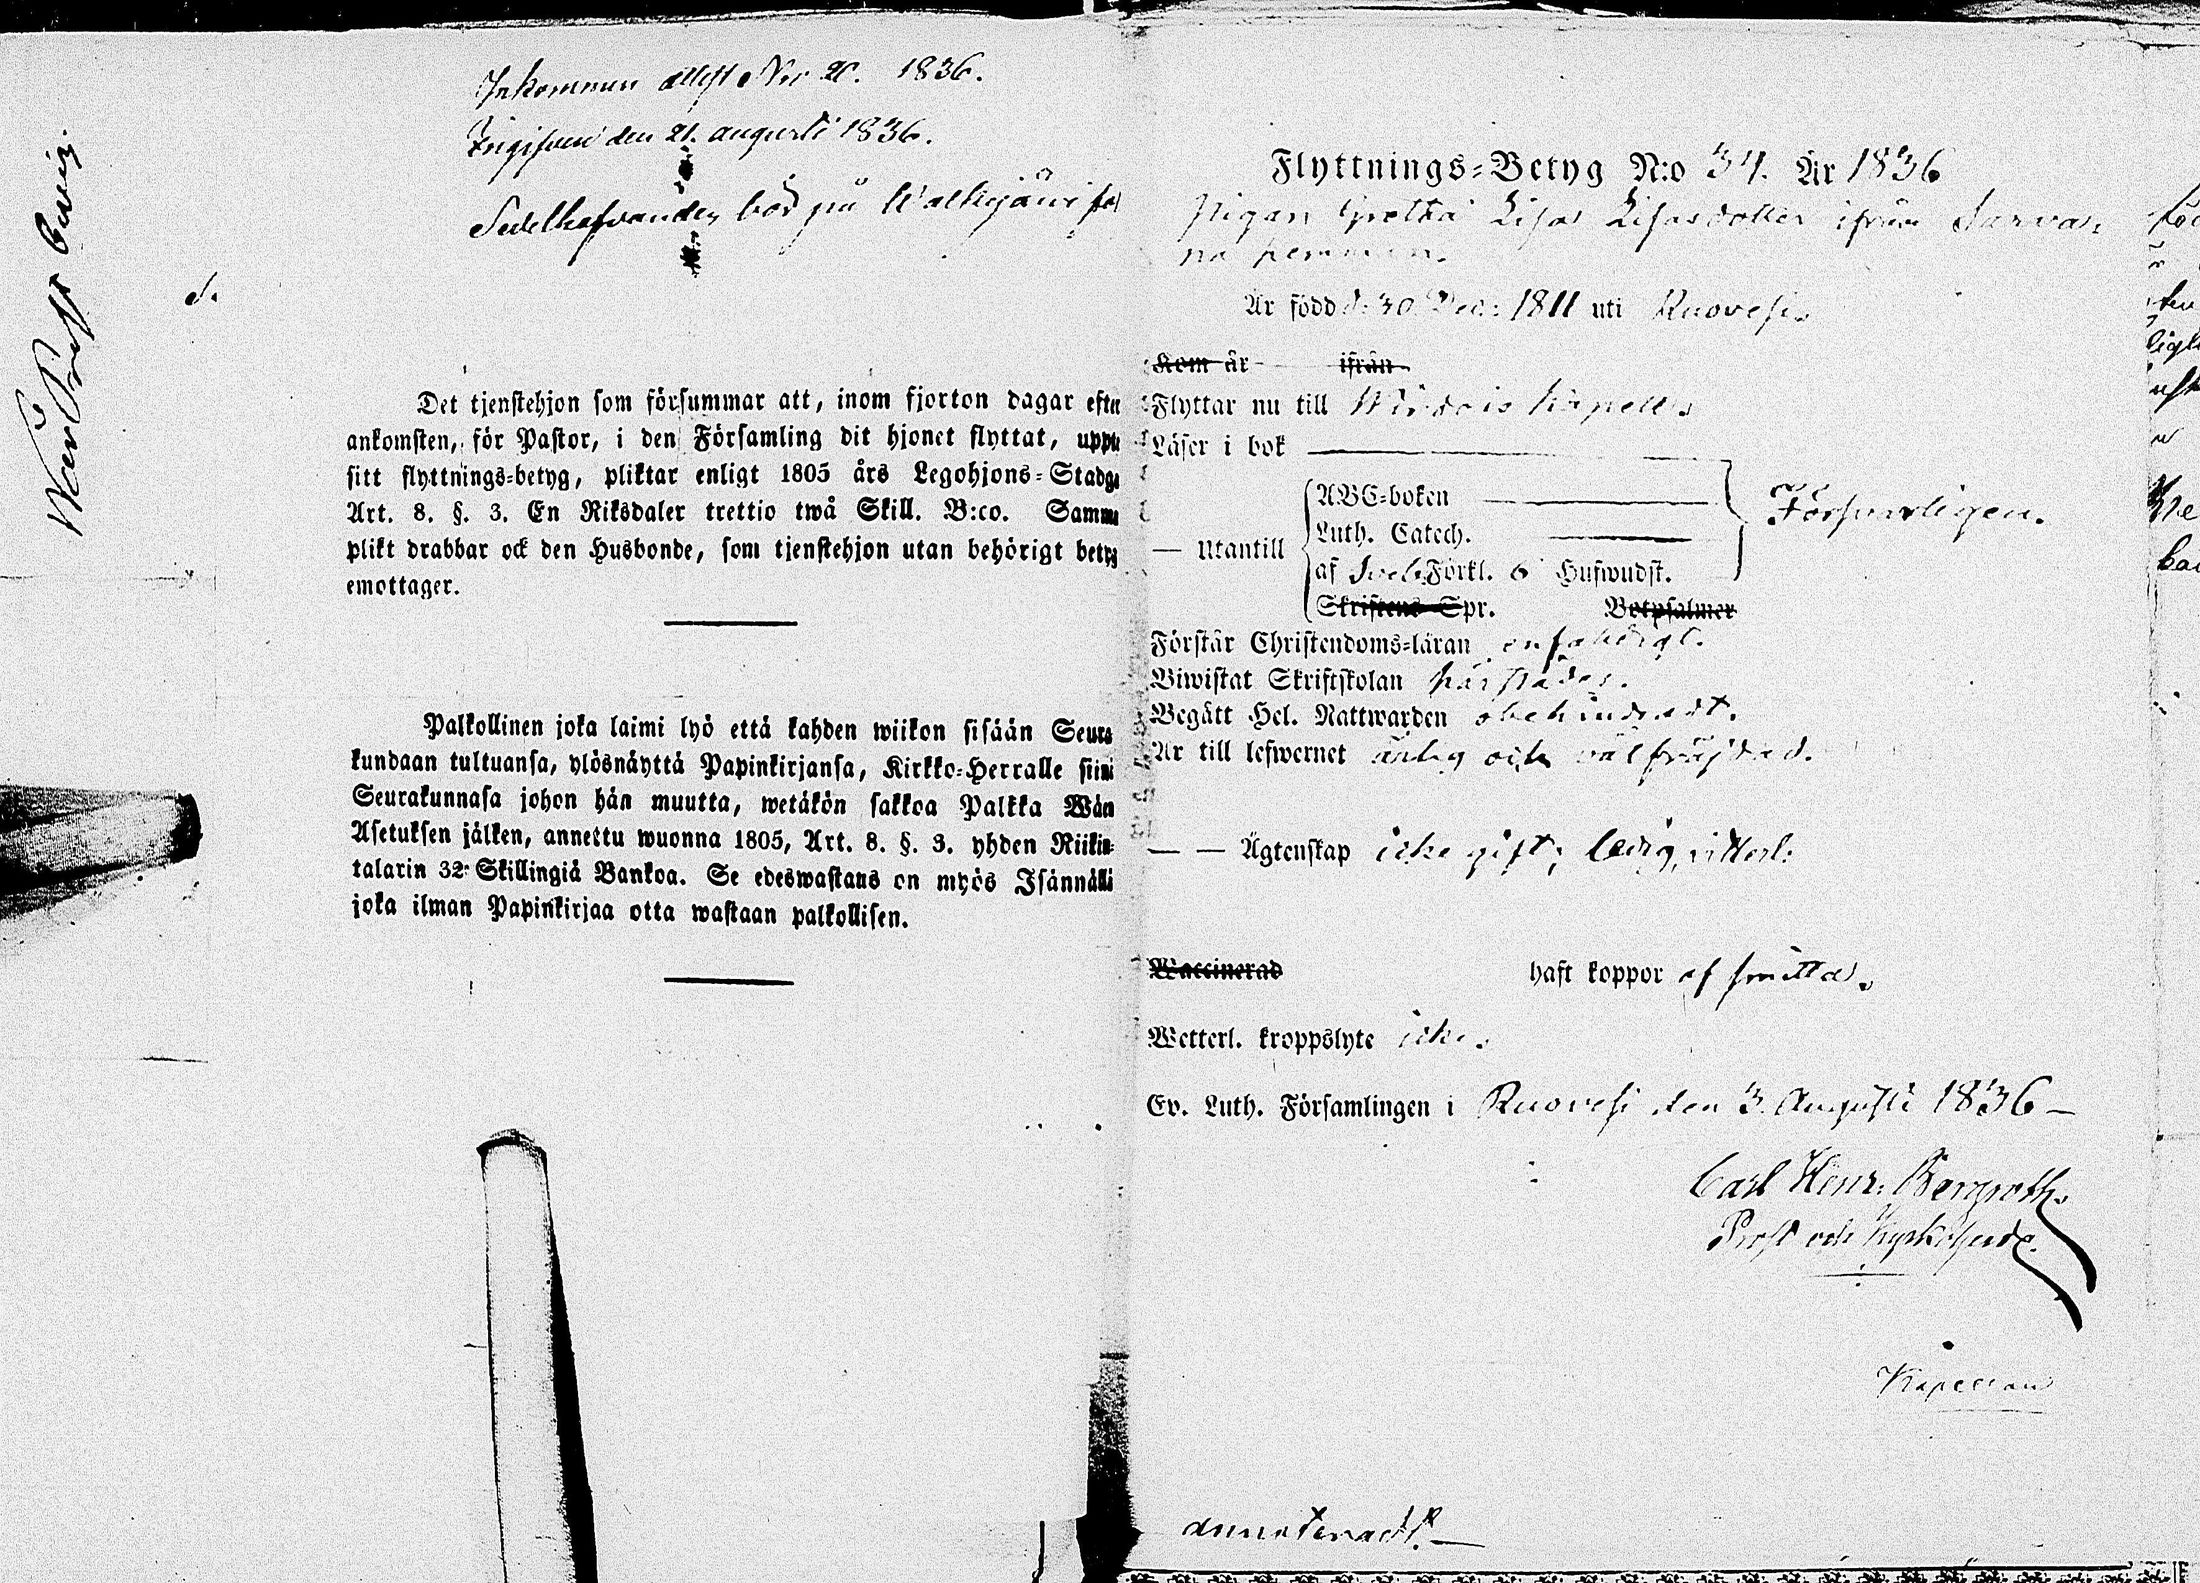 Inkommen attest No 20. 1836.
den 21. augusti 1836.
bör på
Det tjenstehjon som försummar att, inom fjorton dagar efter
ankomsten, för Pastor, i den Församling dit hjonet flyttat, uppte
sitt flyttnings-betyg, pliktar enligt 1805 års Legohjons-Stadga
Art. 8. §. 3. En Riksdaler trettio twå Skill. B:co. Samma
plikt drabbar ock den Husbonde, som tjenstehjon utan behörigt betyg
emottager.
Palkollinen joka laimi lyö että kahden wiikon sisään Seura
kundaan tultuansa, ylösnäyttä Papinkirjansa, Kirkko-Herralle siini
Seurakunnasa johon hän muutta, wetäkön sakkoa Palkka Wäen
Asetuksen jälken, annettu wuonna 1805, Art. 8. §. 3. yhden Riikin-
talarin 32 Skillingiä Bankoa. Se edeswastaus on myös Isännällä
joka ilman Papinkirjaa otta wastaan palkollisen.
Flyttnings-Betyg N:o 34. År 1836
Pigan Gretha Lisa Lisasdotter ifrån
hemman.
Är född d. 30 Dec: 1811 uti Ruovesi.
Kom år ifrån
Flyttar nu till Wirdois Kapell.
Läser i bok
ABC-boken
Luth. Catech.
Försvarligen.
— utantill
af Sveb. Förkl. 6 Hufwudst.
Skriftens Spr. Botpsalmer
Förstår Christendoms-läran enfaldigt.
Biwistat Skriftskolan härstädes.
Begått Hel. Nattwarden obehindradt.
Är till lefwernet ärlig och välfräjdad.
— — Ägtenskap icke gift; ledig, witterl:
Waccinerad haft koppor af smitta.
Wetterl. kroppslyte icke.
Ev. Luth. Församlingen i Ruovesi den 3. Augusti 1836 —
Carl Henr: Bergroth.
Prost och Kyrkoherde.